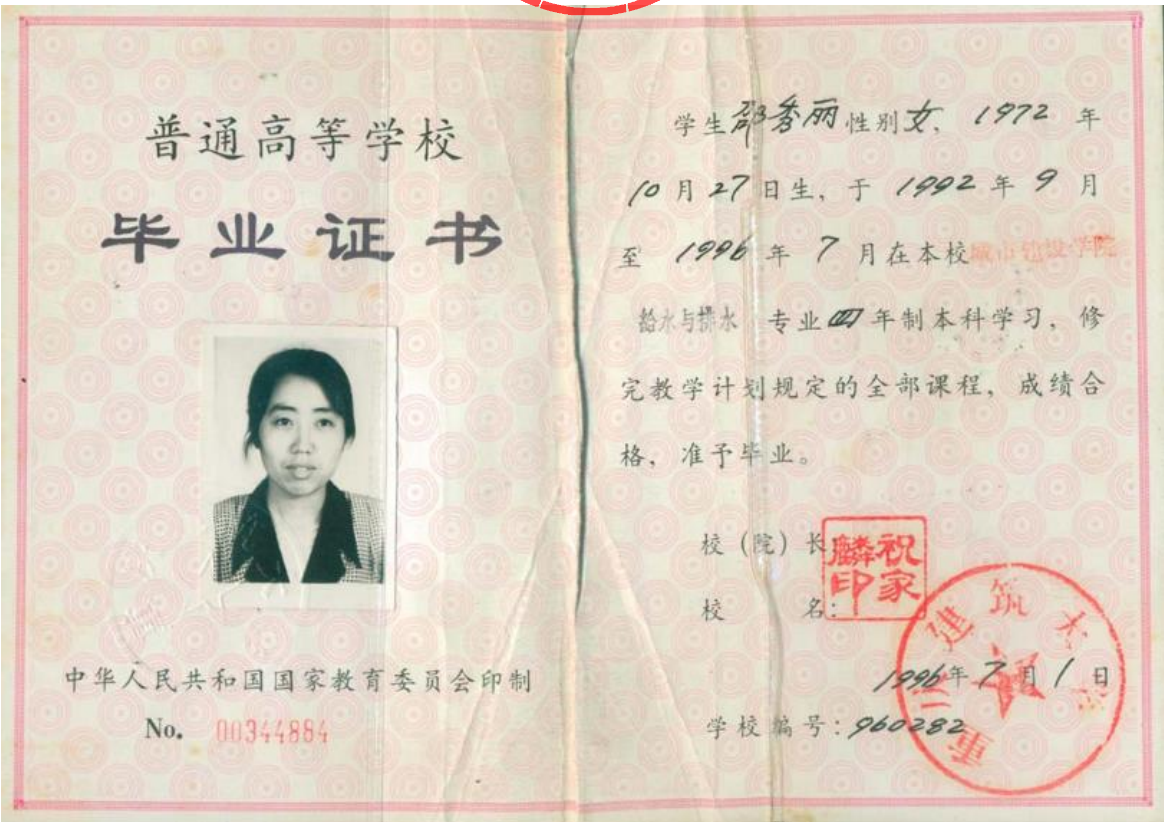 普通高等学校
毕业证书
中华人民共和国国家教育委员会印制
No. 00344884
学生邵秀丽性别女，1972年
10月27日生，于1992年9月
至1996年7月在本校城市建设学院
给水与排水 专业四年制本科学习，修
完教学计划规定的全部课程，成绩合
格，准予毕业。
校（院）长
祝家麟印
校 名：
重庆建筑大学
1996年7月1日
学校编号：960282